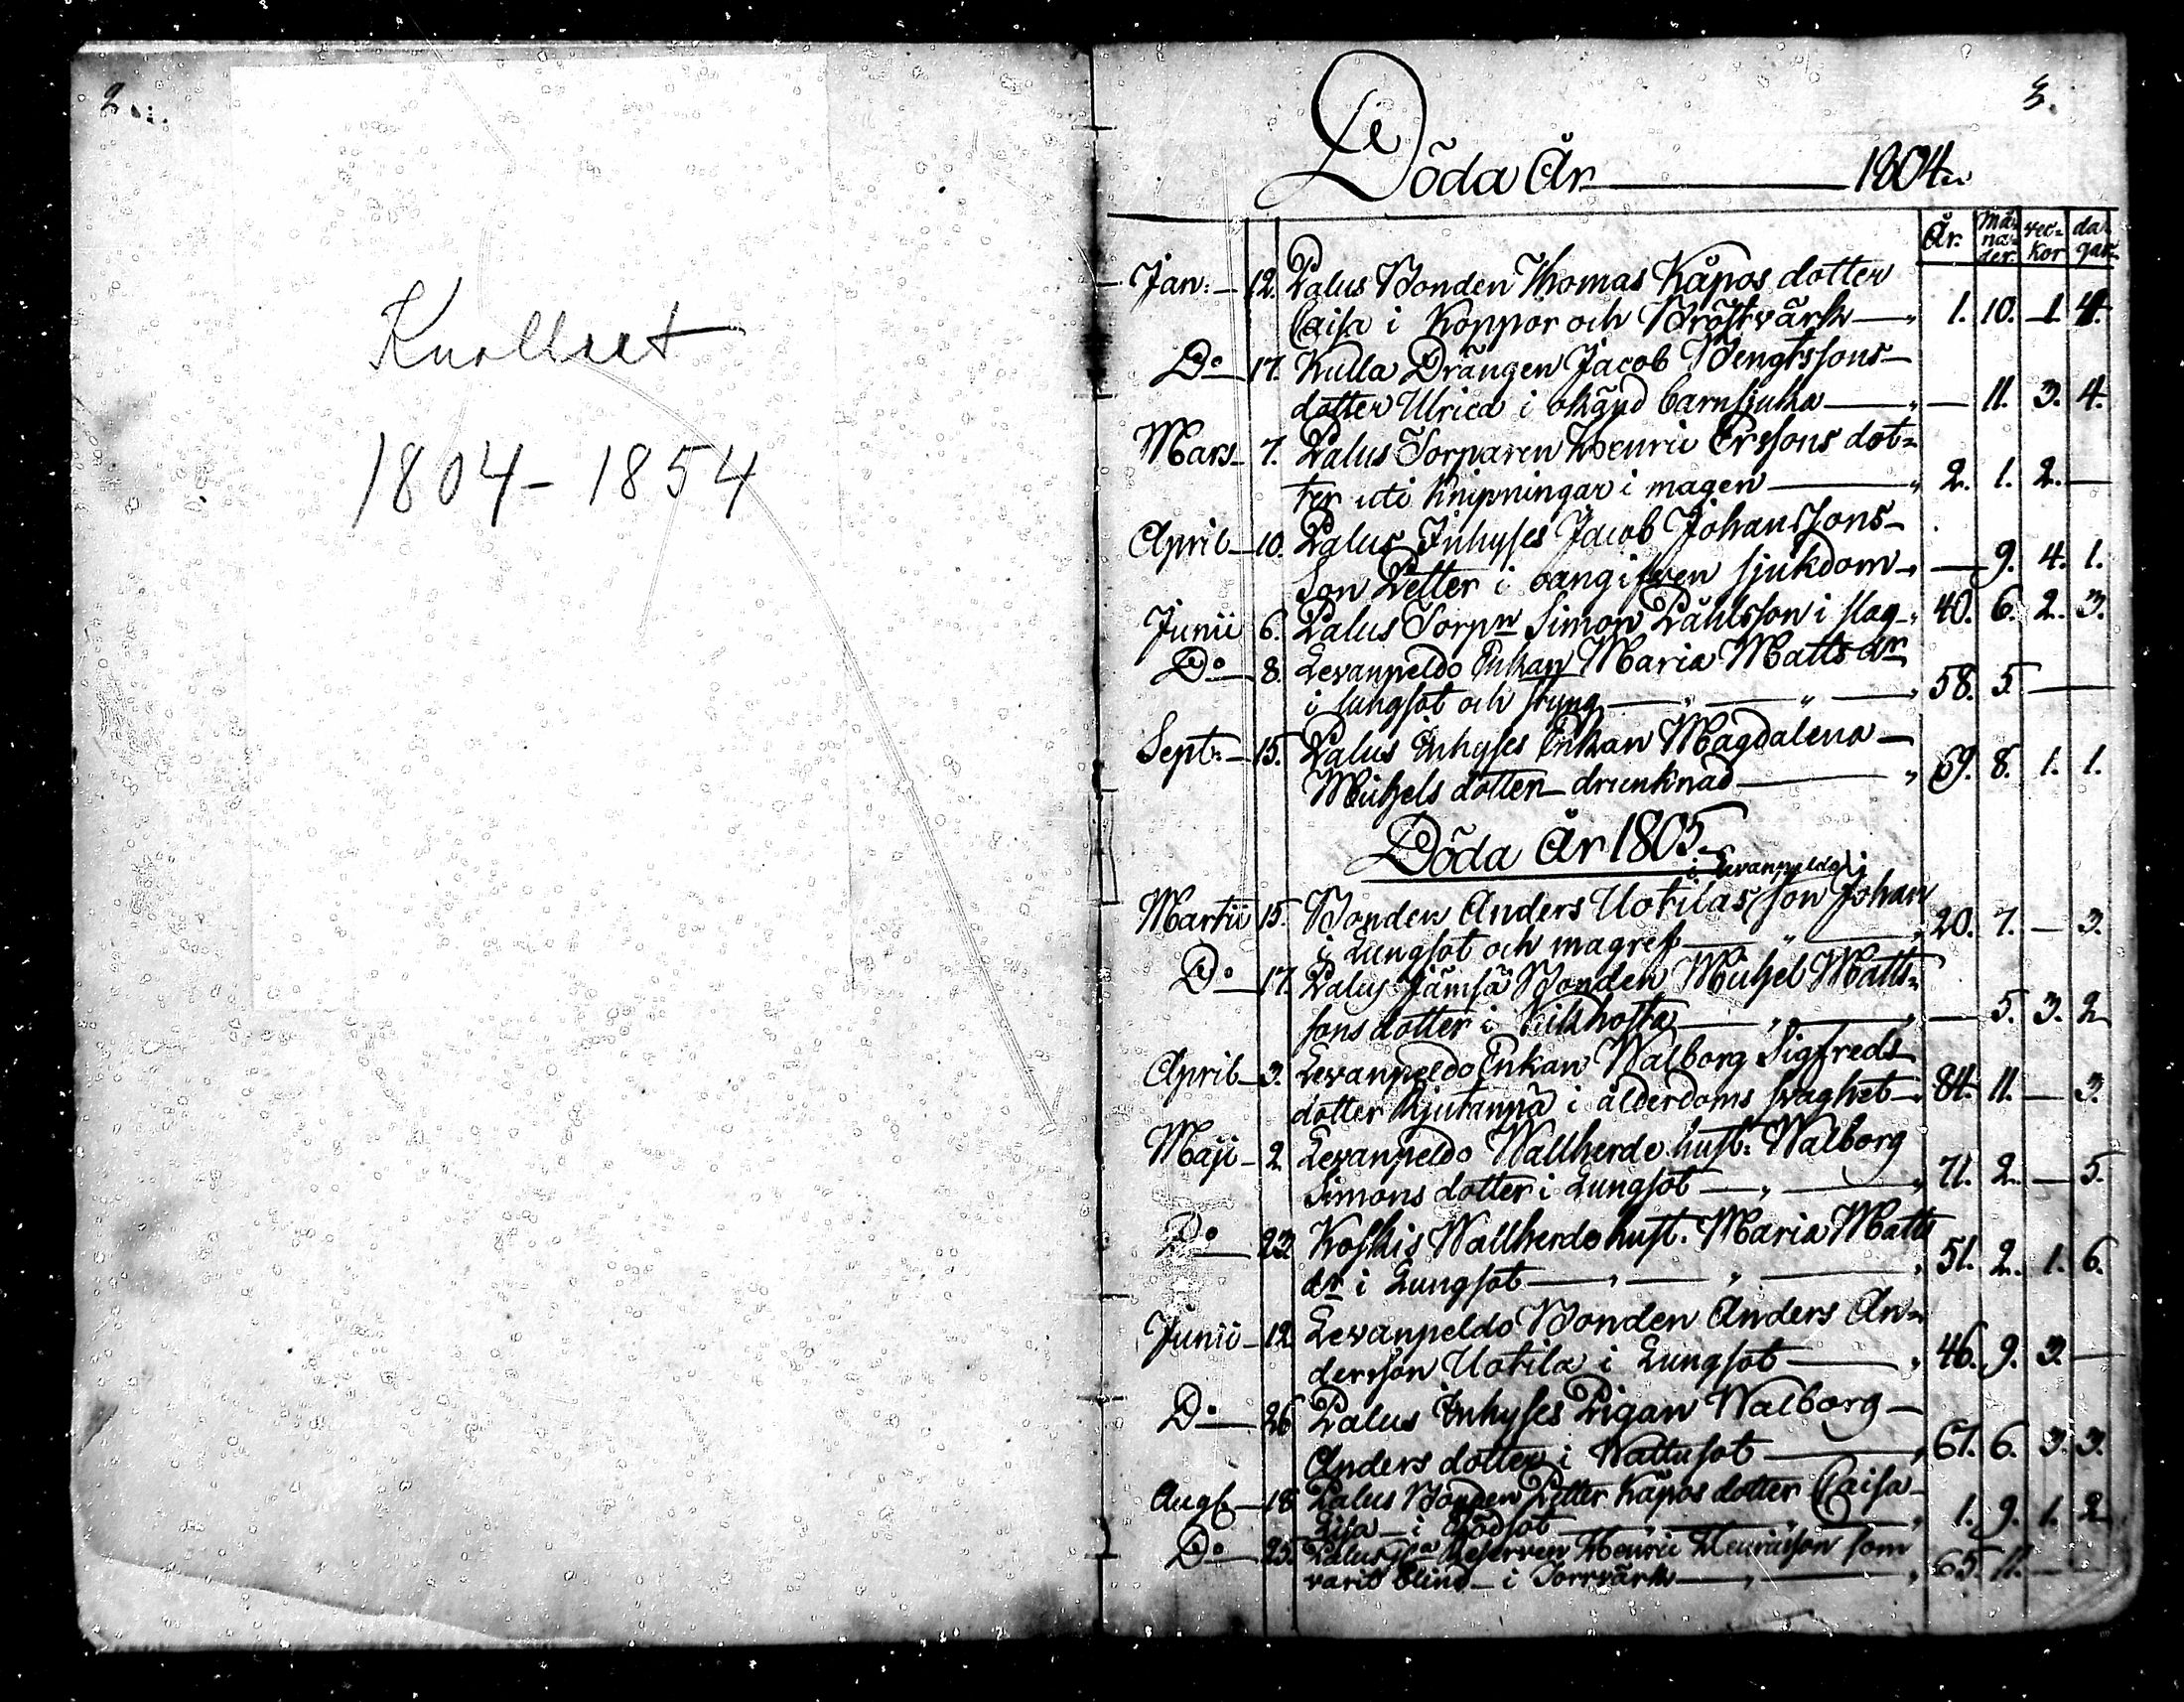 2
Kuolleet
1804-1854
3.
Döda År 1804
År. Må= na= der. vec= kor da= gar.
Jan: 12. Palus Bonden Thomas Kåpos dotter
Caisa i Koppor och Bröstvärk 1. 10. 1. 4.
Do 17. Kulla Drängen Jacob Bengtssons
dotter Ulrica i okänd barnsjuka — 11. 3. 4.
Mars 7. Palus Torparen Henric Erssons dot=
ter uti Knipningar i magen 2. 1. 2. —
April 10. Palus Inhyses Jacob Johanssons
Son Petter i oangifven sjukdom — 9. 4. 1.
Junii 6. Palus Torpn Simon Påhlsson i slag 40. 6. 2. 3.
Do 8. Levanpeldo Enkan Maria Matts dr
i lungsot och styng 58. 5. —
Sept: 15. Palus Inhyses Enkan Magdalena
Michels dotter drunknad 69. 8. 1. 1.
Döda År 1805
i Levanpeldo
Martii 15. Bonden Anders Uotilas son Johan
i Lungsot och magref 20. 7. — 3.
Do 17. Palus Jämsä Bonden Michel Matts=
sons dotter i Kikhosta — 5. 3. 2
April 3. Levanpeldo Enkan Walborg Sigfreds
dotter i ålderdoms svaghet 84. 11. — 3.
Maji 2. Levanpeldo Wallherde hust: Walborg
Simons dotter i Lungsot 71. 2. — 5.
Do 23 Koskis Wallherde hust. Maria Matts
dr i Lungsot 51. 2. 1. 6.
Junii 12 Levanpeldo Bonden Anders An=
dersson Uotila i Lungsot 46. 9. 3. —
Do 26 Palus Inhyses Pigan Walborg
Anders dotter i Wattusot 67. 6. 3. 3.
Augs 18 Palus Bonden Petter Kåpos dotter Caisa
Lisa i Rödsot 1. 9. 1. 2
Do 25. Palus Henric Henricsson som
varit blind i Torrvärk 65. 11. —